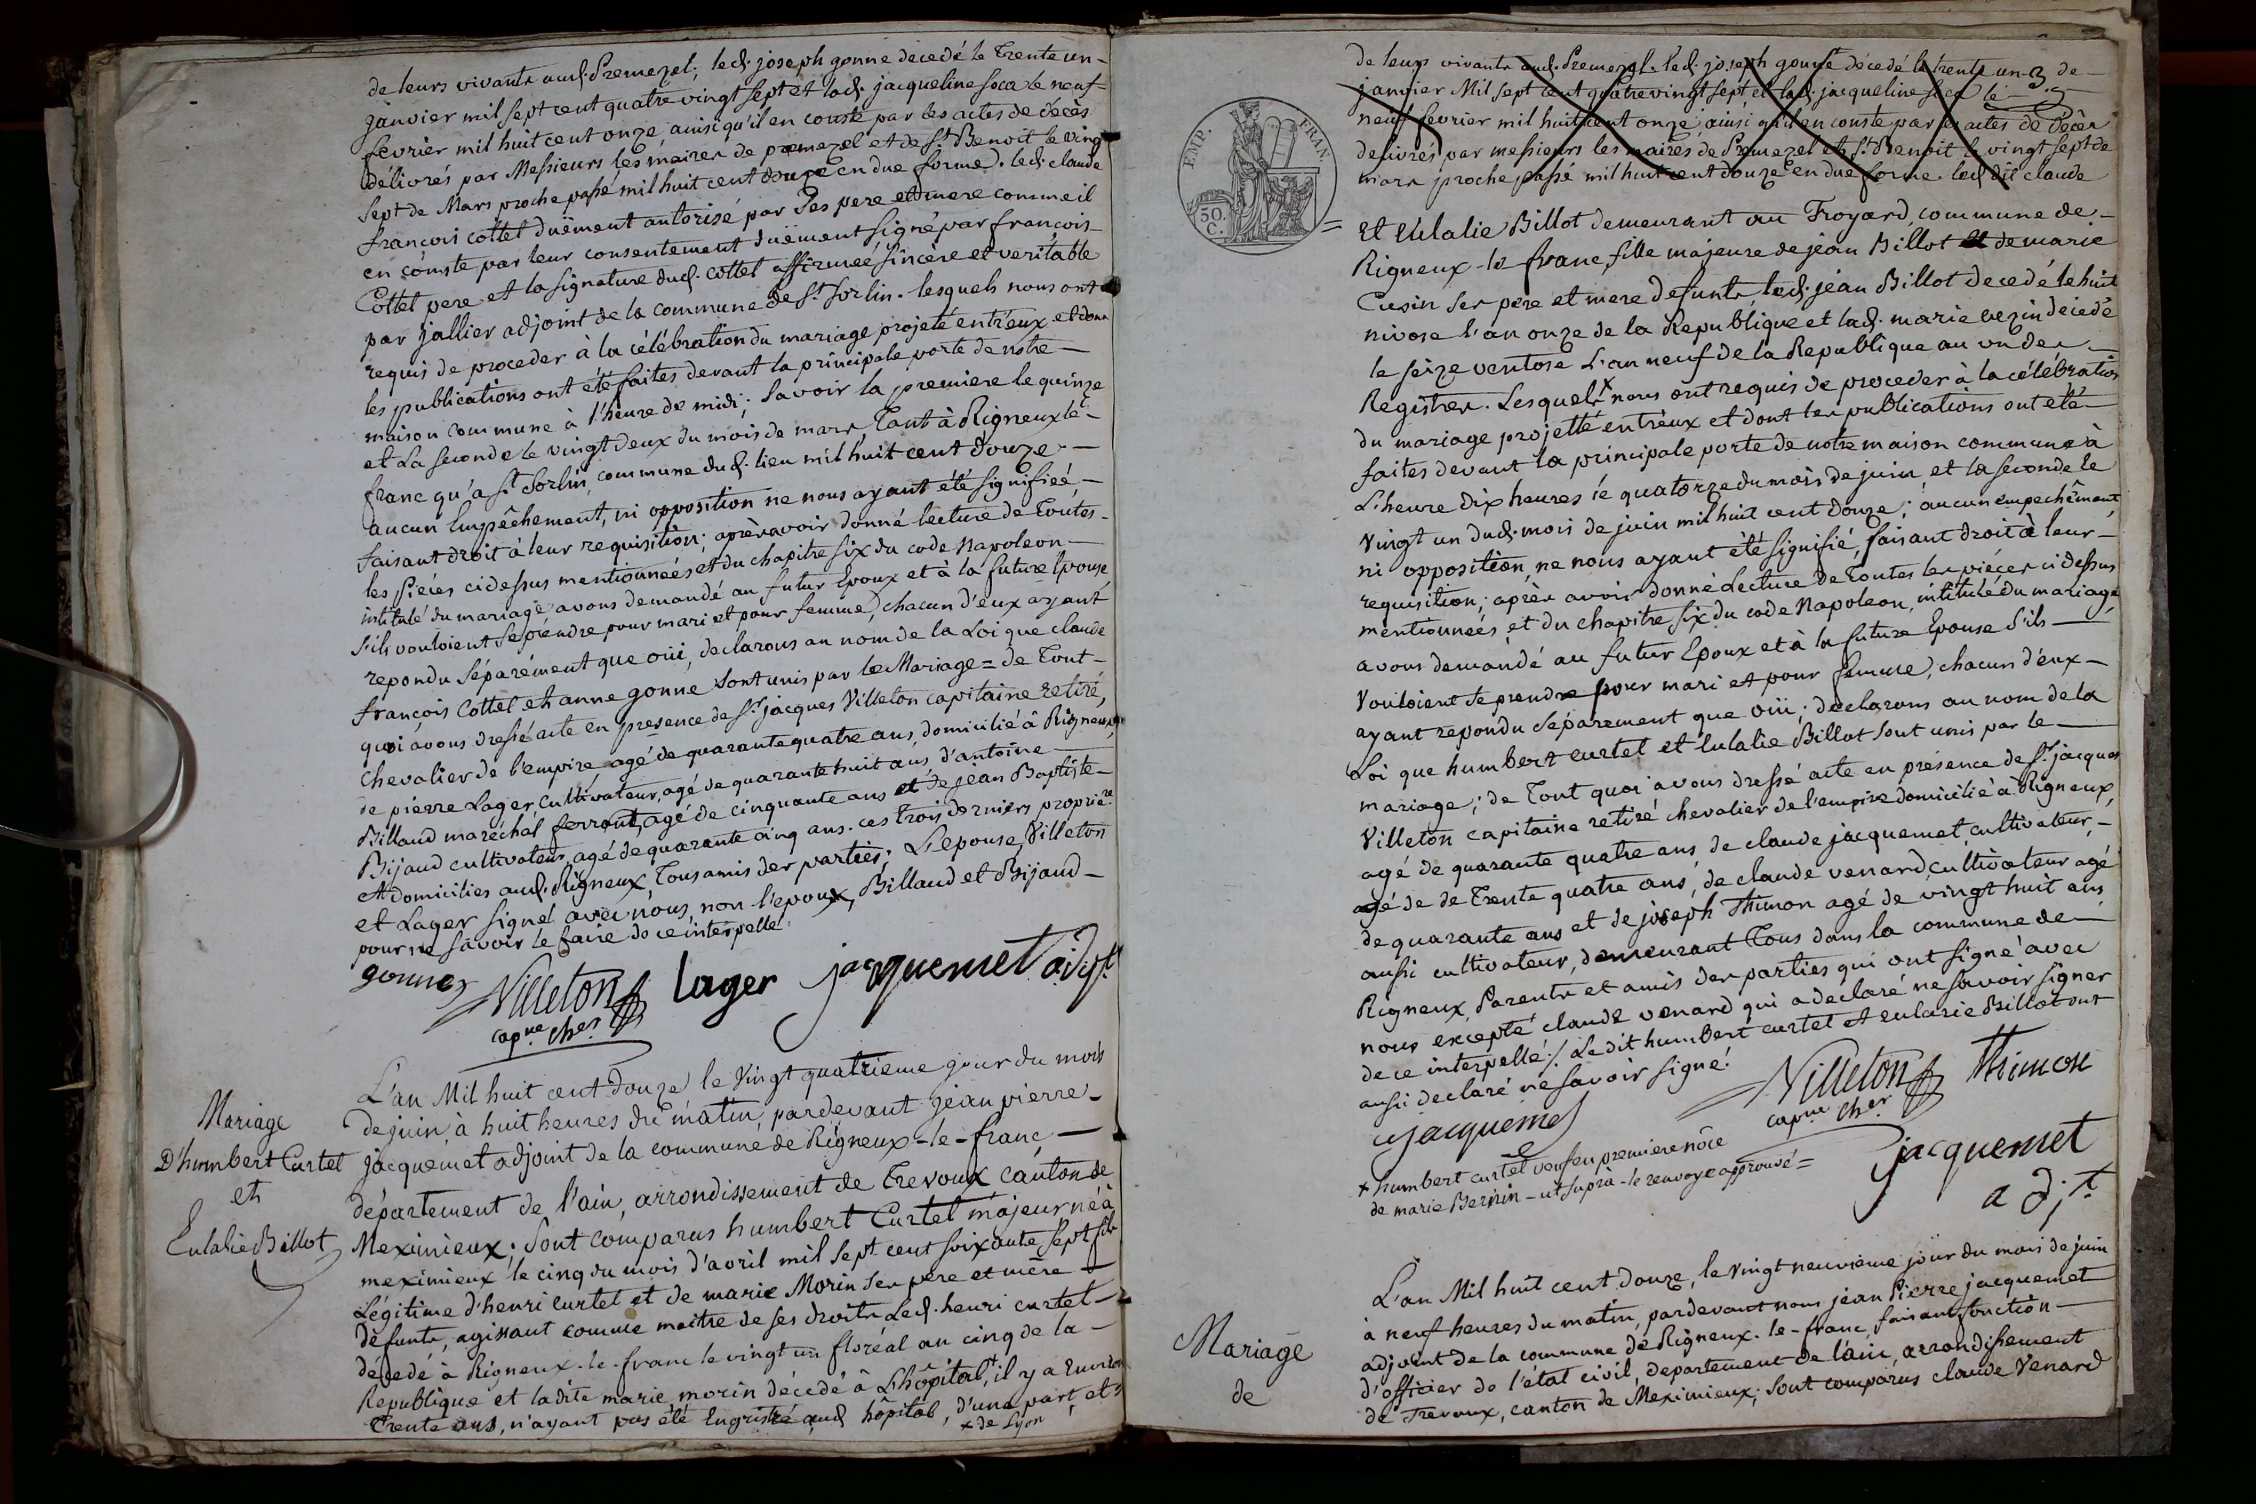 de leurs vivants aud. Premezel; led. joseph gonne décedé le Trente un
janvier mil sept cent quatre vingt sept et lad. jacqueline soca le neuf
fevrier mil huit cent onze ainsi qu'il en conste par les actes de décès
délivrés par Messieurs les maires de premezel et de St. Benoit le vingt
Sept de Mars proche passé mil huit cent douze en due forme. led. claude
françois Cottet duëment autorisé par Ses pere et mere comme il
en conste par leur consentement duëment Signé par françois
Cottet pere et la signature dud. Cottet affirmée sincère et veritable
par jallier adjoint de la commune de St. Sorlin. lesquels nous ont
requis de proceder à la célébration du mariage projeté entr'eux et dont
les publications ont été faites devant la principale porte de notre
maison commune à l'heure de midi; savoir la premiere le quinze
et La seconde le vingt deux du mois de mars Tant à Rigneux le
franc qu'a St. Sorlin, commune dud. lieu mil huit cent douze
aucun Empêchement, ni opposition ne nous ayant été signifiée,
faisant droit à leur requisition; après avoir donné lecture de Toutes
les Pièces cidessus mentionnées et du chapitre six du code Napoleon
intitulé du mariage avons demandé au futur Epoux et à la future Epouse
S'ils vouloient se prendre pour mari et pour femme, chacun d'eux ayant
repondu Séparément que oüi, declarons au nom de la Loi que claude
françois Cottet et anne gonne sont unis par le Mariage = de Tout
quoi avons dressé acte en presence de Sr. jacques Villeton capitaine retiré,
chevalier de l'empire agé de quarante quatre ans, domicilié à Rigneux,
de pierre Lager, cultivateur, agé de quarante huit ans, d'antoine
Billaud maréchal ferrant, agé de cinquante ans et de jean Baptiste
Bijaud cultivateur, agé de quarante cinq ans. ces Trois derniers propriét.
et domiciliés aud. Rigneux, Tous amis des parties; L'epouse, Villeton
et Lager signé avec nous, non l'epoux, Billaud et Bijaud
pour ne savoir le faire de ce interpellé.
gonne
Villeton lager jacquemet adjt
capne. cher.
Mariage
D'humbert Curtet
et
Eulalie Billot
L'an Mil huit cent Douze le Vingt quatrieme jour du mois
de juin, à huit heures du matin, pardevant jean pierre
jacquemet adjoint de la commune de Rigneux-le-franc
département de l'ain, arrondissement de Trevoux canton de
Meximieux; Sont comparus humbert Curtet majeur né à
meximieux le cinq du mois d'avril mil sept cent soixante sept fils
Légitime d'henri curtet et de marie Morin ses père et mère
défunts, agissant comme maitre de ses droits Led. henri curtet
décedé à Rigneux-le-franc le vingt un floréal an cinq de la
Republique et ladite marie morin décédé à L'hôpital + il y a Environ
Trente ans, n'ayant pas été Engristré aud. hôpital, d'une part, et
+ de Lyon
EMP. FRAN.
50. C.
de leurs vivants aud. Premezel. led. joseph gonne décedé le trente un de
janvier Mil sept cent quatrevingt sept et lad. jacqueline soca le
neuf fevrier mil huit cent onze ainsi qu'il en conste par les actes de Décès
delivrés par messieurs les maires de Premezel et St. Benoit le vingt sept de
mars proche passé mil huit cent douze en due forme. led. dit claude
Et Eulalie Billot demeurant au Froyard, commune de
Rigneux-le-franc, fille majeure de jean Billot et de marie
Cusin ses pere et mere defunts, led. jean Billot decedé le huit
nivose l'an onze de la Republique et lad. marie cuzin décédé
le seize ventose L'an neuf de la Republique au vu des
Registres. Lesquels x nous ont requis de proceder à la célébration
du mariage projetté entr'eux et dont les publications ont été
faites devant la principale porte de notre maison commune à
L'heure dix heures le quatorze du mois de juin, et la seconde le
Vingt un dud. mois de juin mil huit cent douze; aucun empechêment,
ni opposition, ne nous ayant été signifié, faisant droit à leur
requisition; après avoir donné Lecture de Toutes les pièces cidessus
mentionnées, et du chapitre six du code Napoleon, intitulé du mariage,
avons demandé au futur Epoux et à la future Epouse S'ils
Vouloient se prendre pour mari et pour femme, chacun d'eux
ayant repondu séparement que oüi; declarons au nom de la
Loi que humbert curtet et Eulalie Billot sont unis par le
mariage; de Tout quoi avons dressé acte en présence de Sr. jacques
Villeton capitaine retiré chevalier de l'empire domicilié à Rigneux,
agé de quarante quatre ans, de claude jacquemet, cultivateur,
agé de de Trente quatre ans, de claude venard, cultivateur agé
de quarante ans et de joseph Thimon agé de vingt huit ans
aussi cultivateur, demeurant Tous dans la commune de
Rigneux, Parents et amis des parties qui ont signé avec
nous excepté claude venard qui a déclaré ne savoir signer
de ce interpellé./. Le dit humbert curtet et Eulalie Billot ont
aussi declaré ne savoir signé.
cjacquemet Villeton Thimon
capne cher
x humbert curtet veuf en premiere nôce
de marie Bernin - ut supra - le renvoye approuvé =
jacquemet
adjt
Mariage
de
L'an Mil huit cent douze, le Vingt neuvieme jour du mois de juin
à neuf heures du matin, pardevant nous jean Pierre jacquemet
adjoint de la commune de Rigneux-le-franc, faisant fonction
d'officier de l'état civil, département de l'ain, arrondissement
de Trevoux, canton de Meximieux; Sont comparus claude Venard